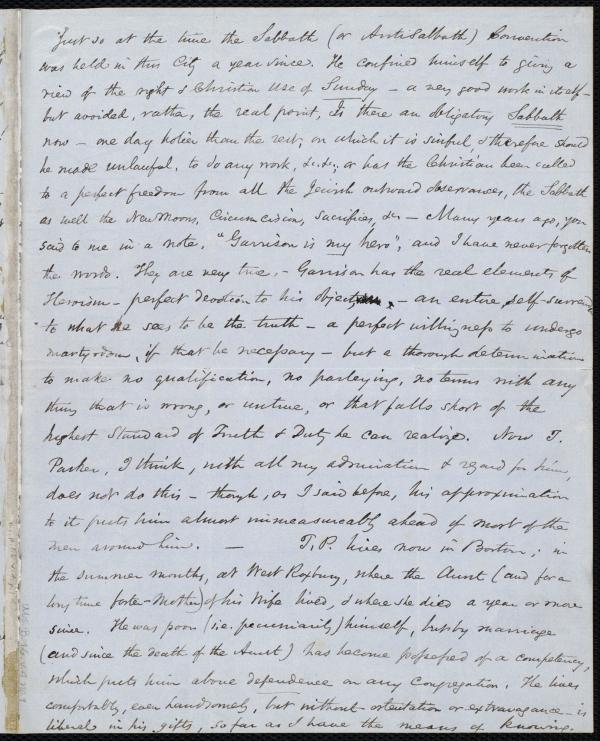 Just so at the time the Sabbath (or AntiSabbath) Convention
was held in this City a year since. He confined himself to giving a
view of the right & Christian use of Sunday – a very good work in itself –
but avoided, rather, the real point, Is there an obligatory Sabbath
now – one day holier than the rest, on which it is sinful, & therefore should
be made unlawful, to do any work, &c. &c; or has the Christian been called
to a perfect freedom from all the Jewish outward observances, the Sabbath
as well the New Moons, Circumcision, Sacrifices, &c – Many years ago, you
said to me in a note, "Garrison is my hero", and I have never forgotten
the words. They are very true, – Garrison has the real elements of
Heroism – perfect devotion to his object, – an entire, self-surrender
to what he sees to be the truth – a perfect willingness to undergo
martyrdom, if that be necessary – but a thorough determination
to make no qualification, no parleying, no terms with any
thing that is wrong, or untrue, or that falls short of the
highest Standard of Truth & Duty he can realize. Now T.
Parker, I think, with all my admiration & regard for him,
does not do this – though, as I said before, his approximation
to it puts him almost immeasurably ahead of most of the
men around him. – T.P. lives now in Boston; in
the summer months, at West Roxbury, where the Aunt (and for a
long time foster-Mother) of his Wife lived, & where she died a year or more
since. He was poor (i.e. pecuniarily) himself, but by marriage
(and since the death of the Aunt) has become possessed of a competency,
which puts him above dependence on any Congregation. He lives
comfortably, even handsomely, but without ostentation or extravagance – is
liberal in his gifts, so far as I have the means of knowing.